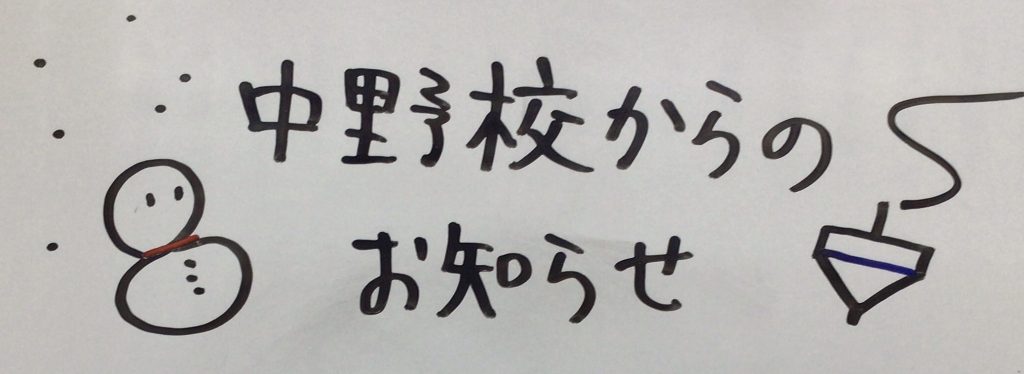 中野校からの
お知らせ